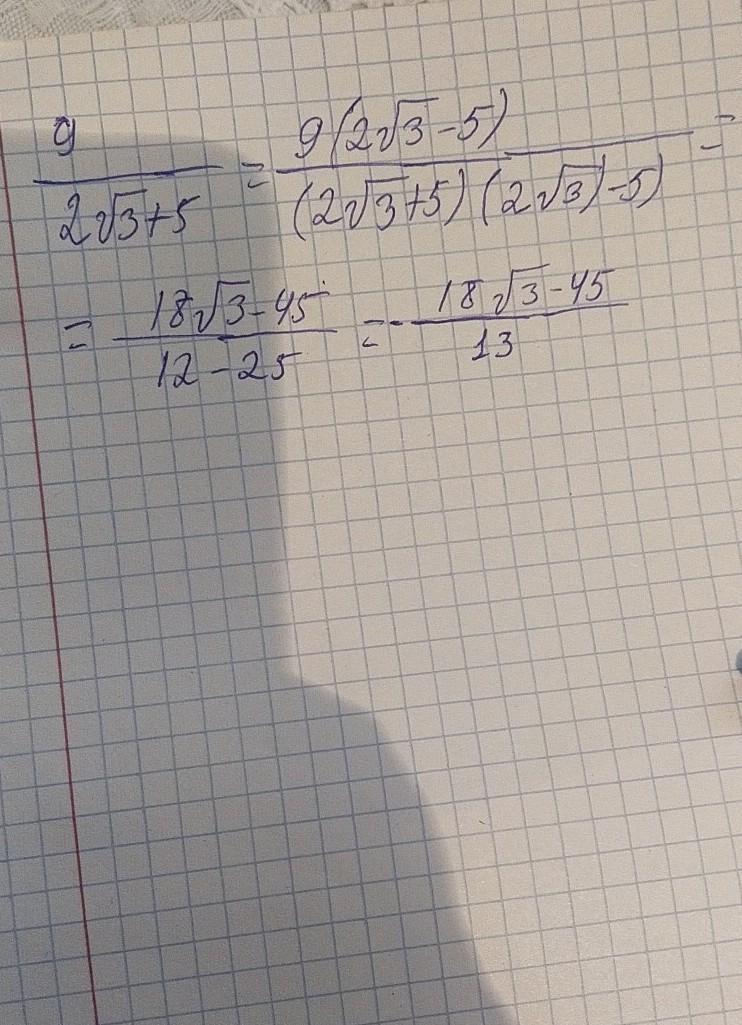 9/(2√3+5) = 9(2√3-5)/((2√3+5)(2√3)-5) =
= (18√3-45)/(12-25) = -(18√3-45)/13